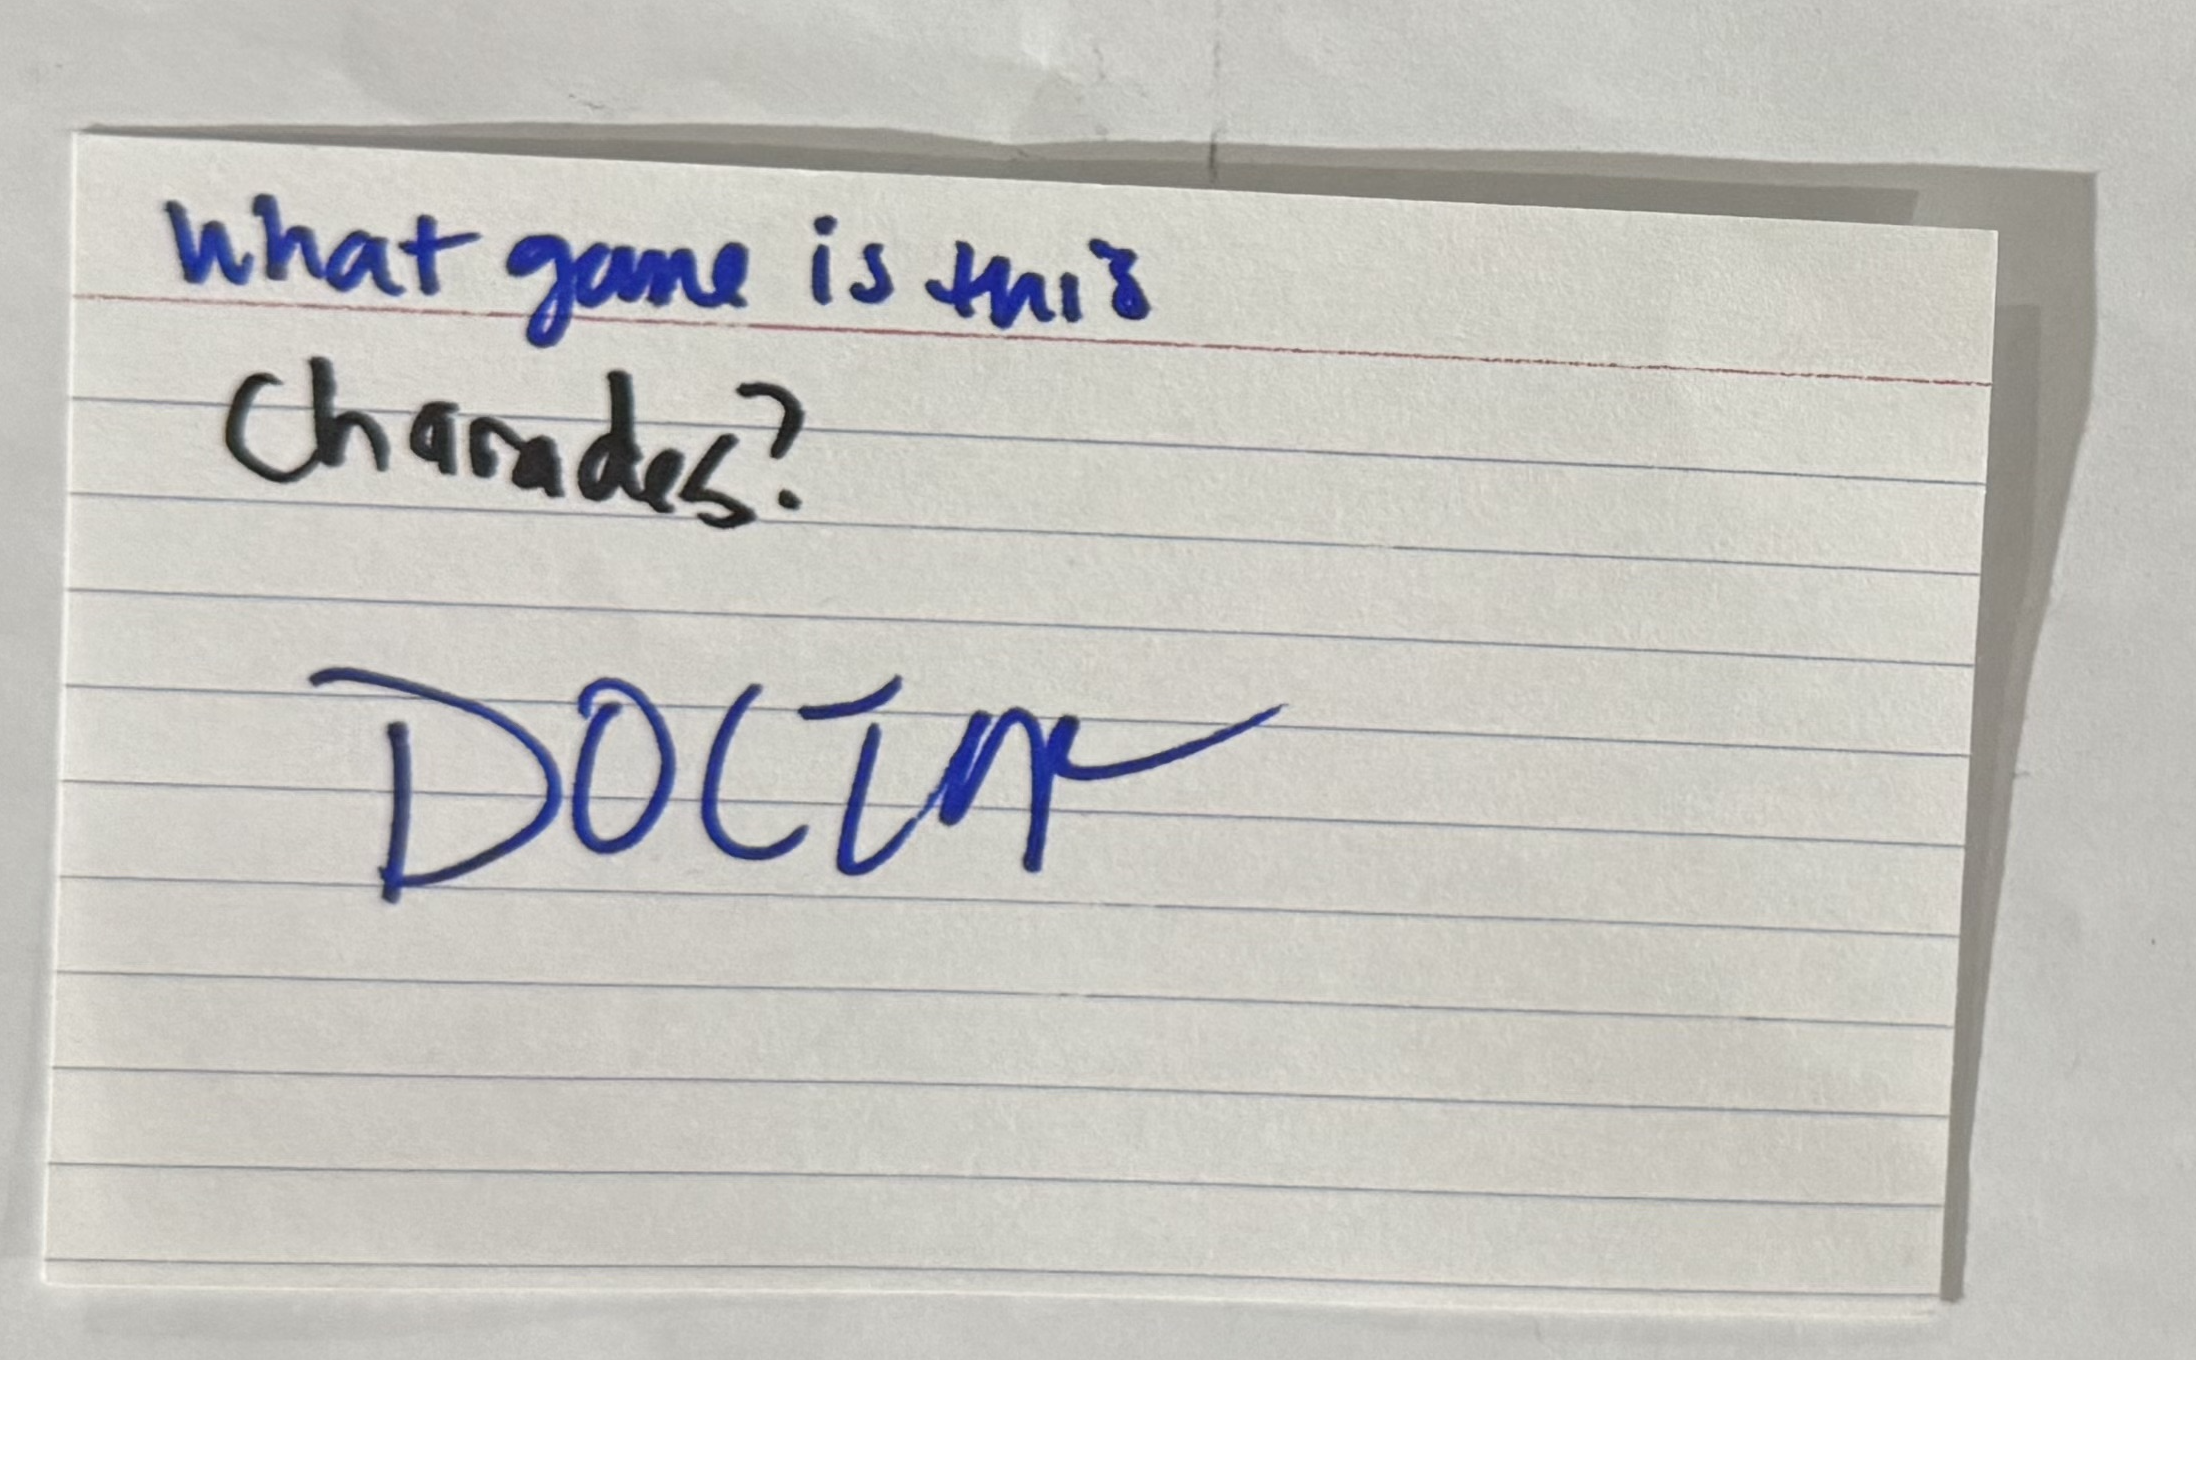 What game is this
Charades?
DOCTOR